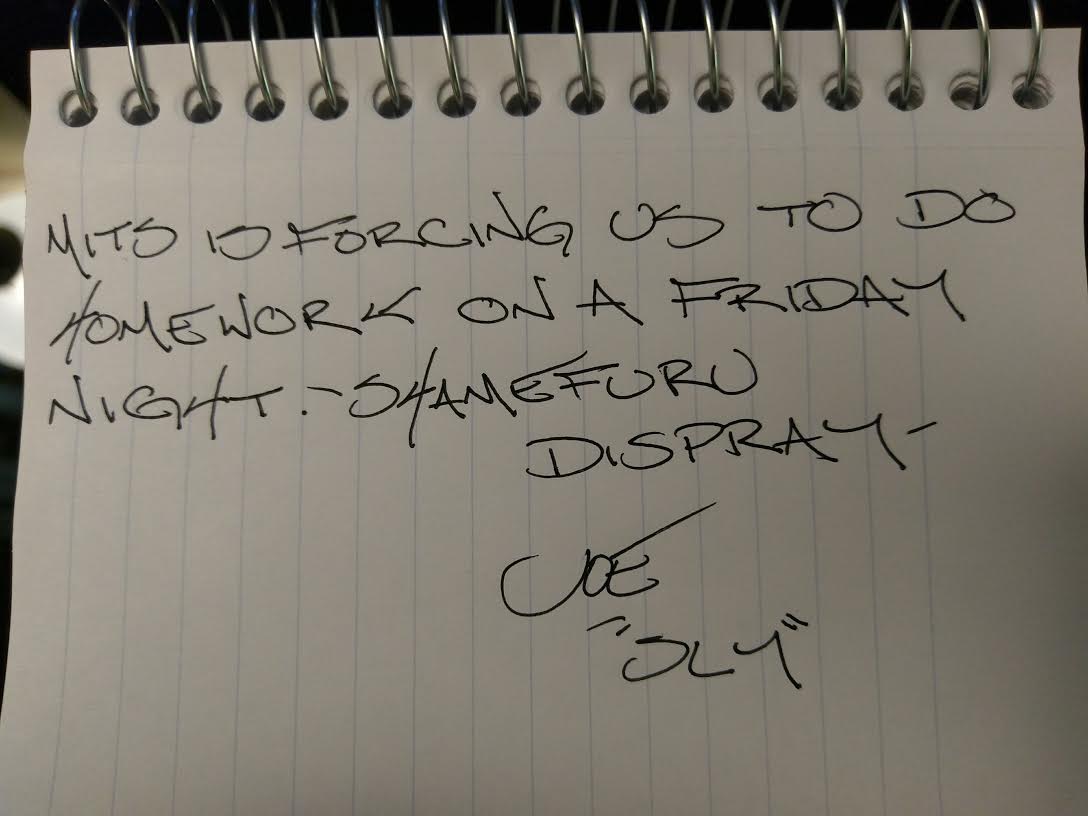 MITS IS FORCING US TO DO
HOMEWORK ON A FRIDAY
NIGHT. -SHAMEFURU
DISPRAY-
JOE
"SLY"